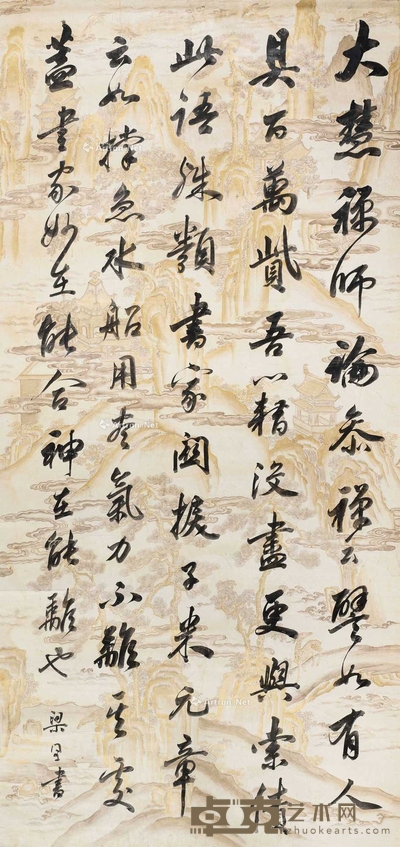 大慧禪師論參禪云譬如有人
具百萬貲吾以籍沒盡更與索債
此語殊類書家關捩子米元章
云如撐急水船用盡氣力不離其處
蓋書家妙在能合神在能離也
梁同書
卓克艺术网
zhuokearts.com